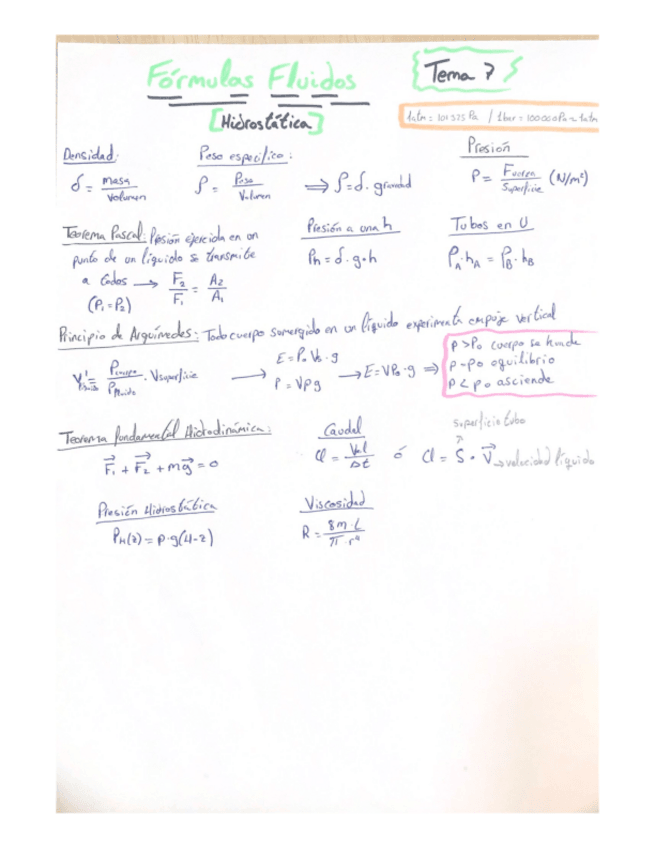 Fórmulas Fluidos
Tema 7
[Hidrostática]
1atm = 101325 Pa / 1bar = 100000Pa ≈ 1atm
Densidad:
δ = masa / Volumen
Peso específico:
ρ = Peso / Volumen ⟹ ρ = δ · gravedad
Presión
P = Fuerza / Superficie (N/m²)
Teorema Pascal: Presión ejercida en un
punto de un líquido se transmite
a todos → F₂/F₁ = A₂/A₁
(P₁=P₂)
Presión a una h
Ph = δ · g · h
Tubos en U
ρA · hA = ρB · hB
Principio de Arquímedes: Todo cuerpo sumergido en un líquido experimenta empuje vertical
Pcuerpo / Pfluido · Vsuperficie
E = P₀ V₀ · g
P = Vρg
→ E = VP₀ · g ⟹
ρ > ρ₀ cuerpo se hunde
ρ = ρ₀ equilibrio
ρ < ρ₀ asciende
Teorema fundamental Hidrodinámica:
F₁ + F₂ + mg = 0
Caudal
Q = Vol / Δt ó Q = S · V → velocidad líquido
superficie tubo
Presión Hidrostática
PH(z) = ρ · g(H-z)
Viscosidad
R = 8m · L / π · r⁴